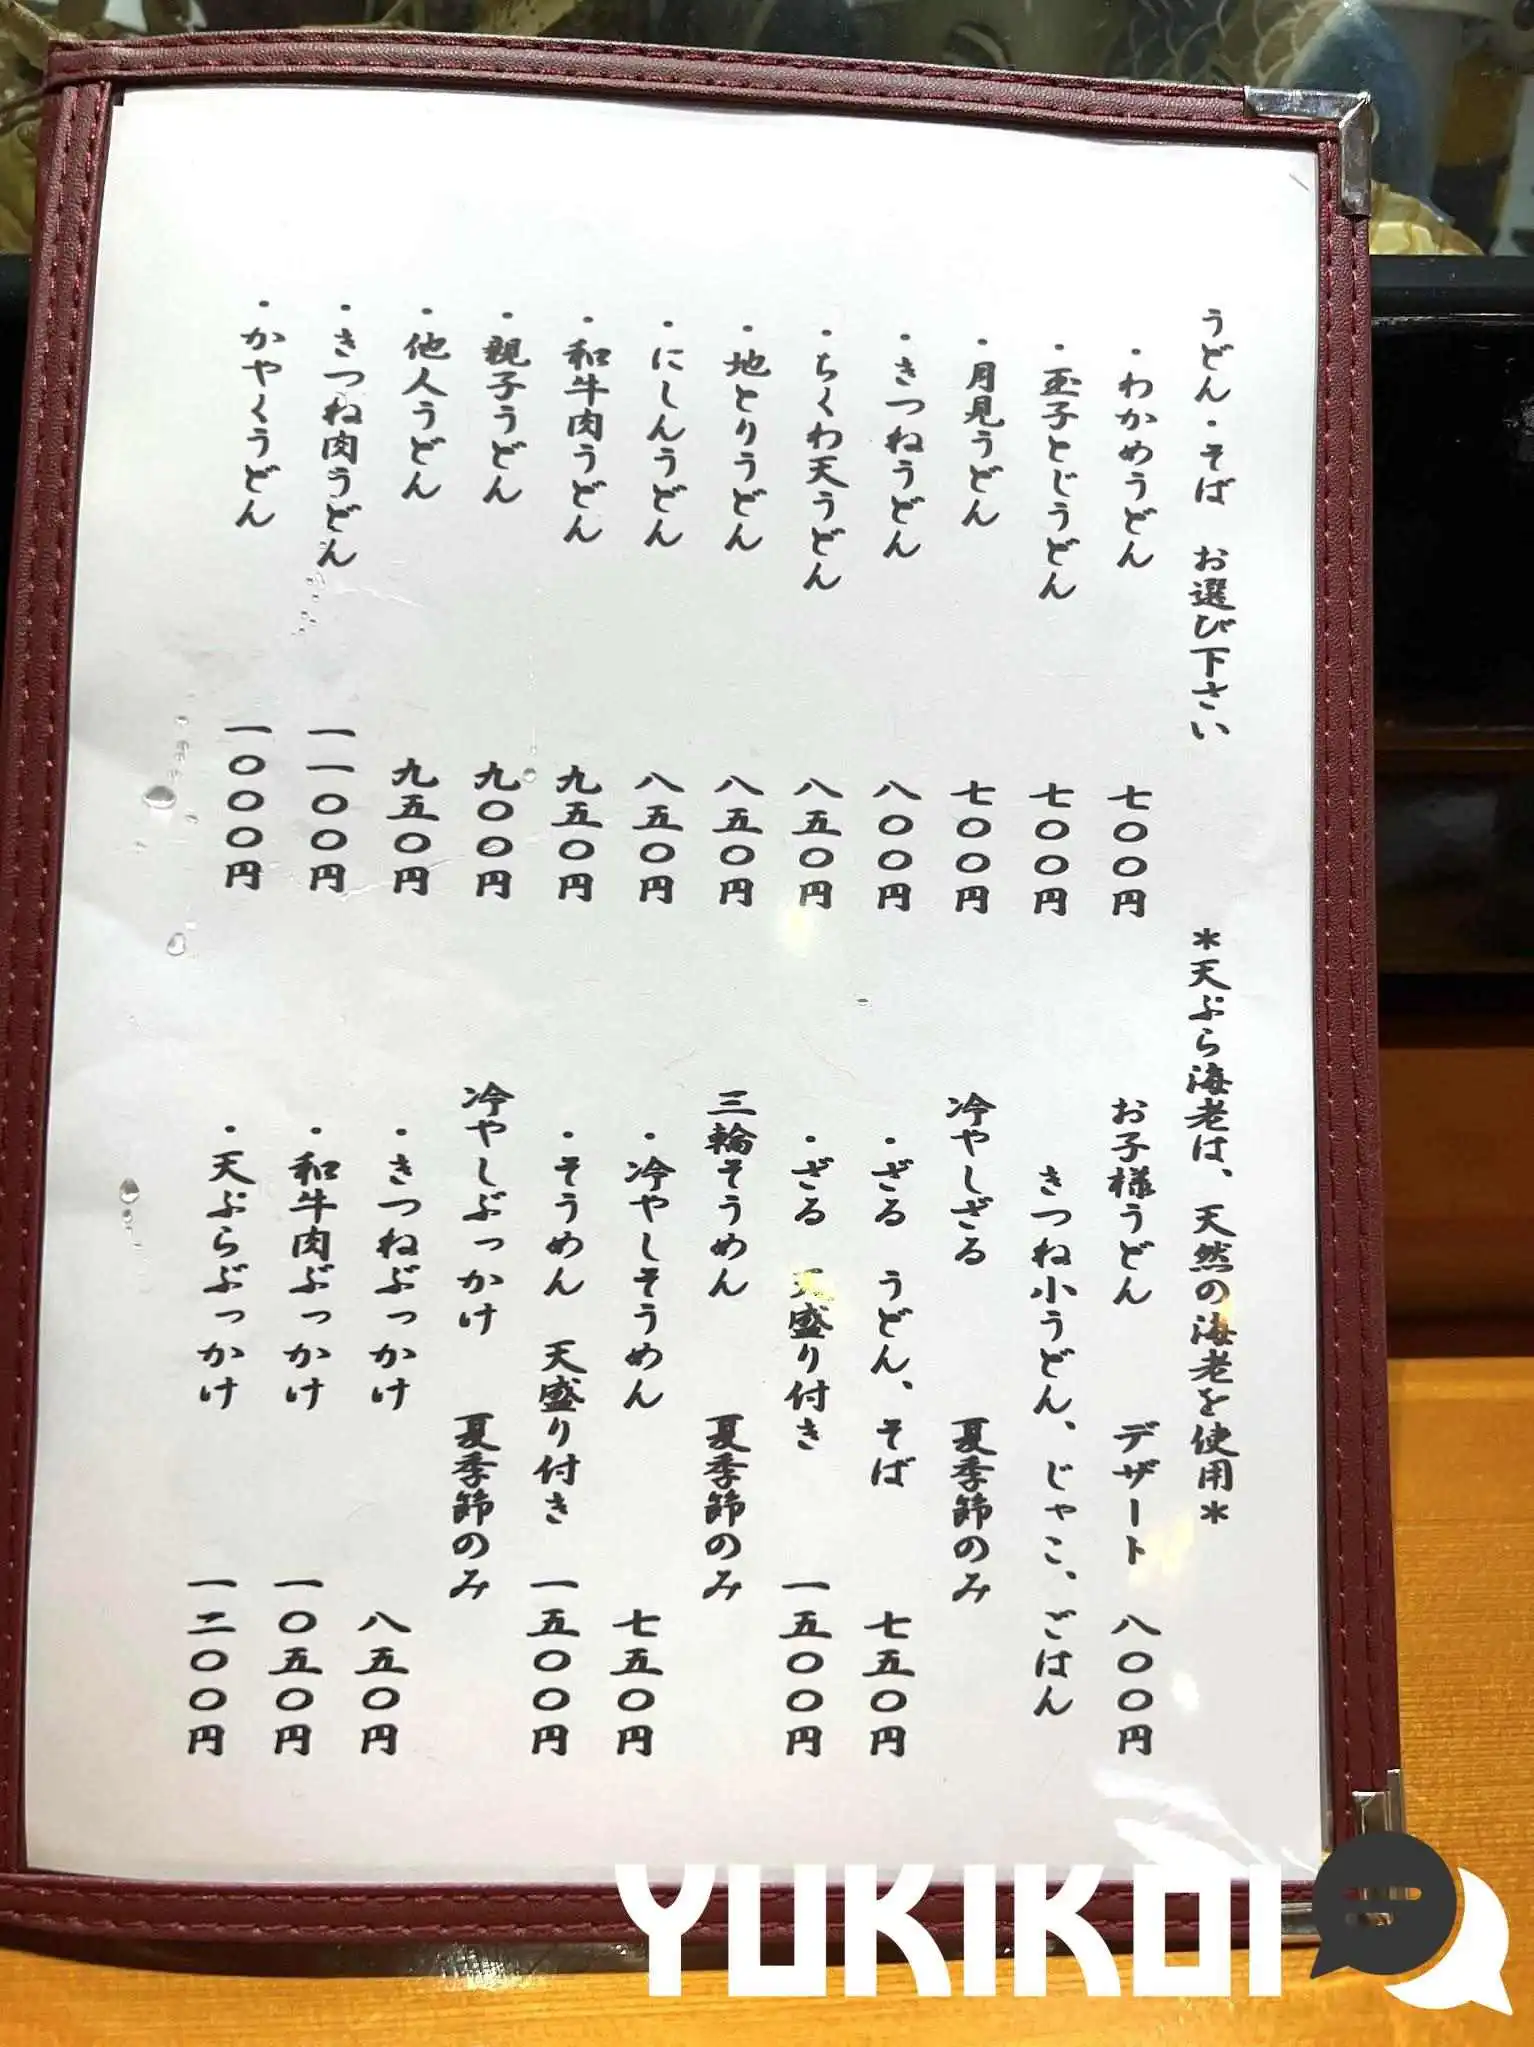 うどん・そば　お選び下さい
・わかめうどん　七〇〇円
・玉子とじうどん　七〇〇円
・月見うどん　七〇〇円
・きつねうどん　八〇〇円
・ちくわ天うどん　八五〇円
・地とりうどん　八五〇円
・にしんうどん　八五〇円
・和牛肉うどん　九五〇円
・親子うどん　九〇〇円
・他人うどん　九五〇円
・きつね肉うどん　一一〇〇円
・かやくうどん　一〇〇〇円
＊天ぷら海老は、天然の海老を使用＊
お子様うどん　デザート　八〇〇円
きつね小うどん、じゃこ、ごはん
冷やしざる　夏季節のみ
・ざる　うどん、そば　七五〇円
・ざる　天盛り付き　一五〇〇円
三輪そうめん　夏季節のみ
・冷やしそうめん　七五〇円
・そうめん　天盛り付き　一五〇〇円
冷やしぶっかけ　夏季節のみ
・きつねぶっかけ　八五〇円
・和牛肉ぶっかけ　一〇五〇円
・天ぷらぶっかけ　一二〇〇円
YUKIKOI